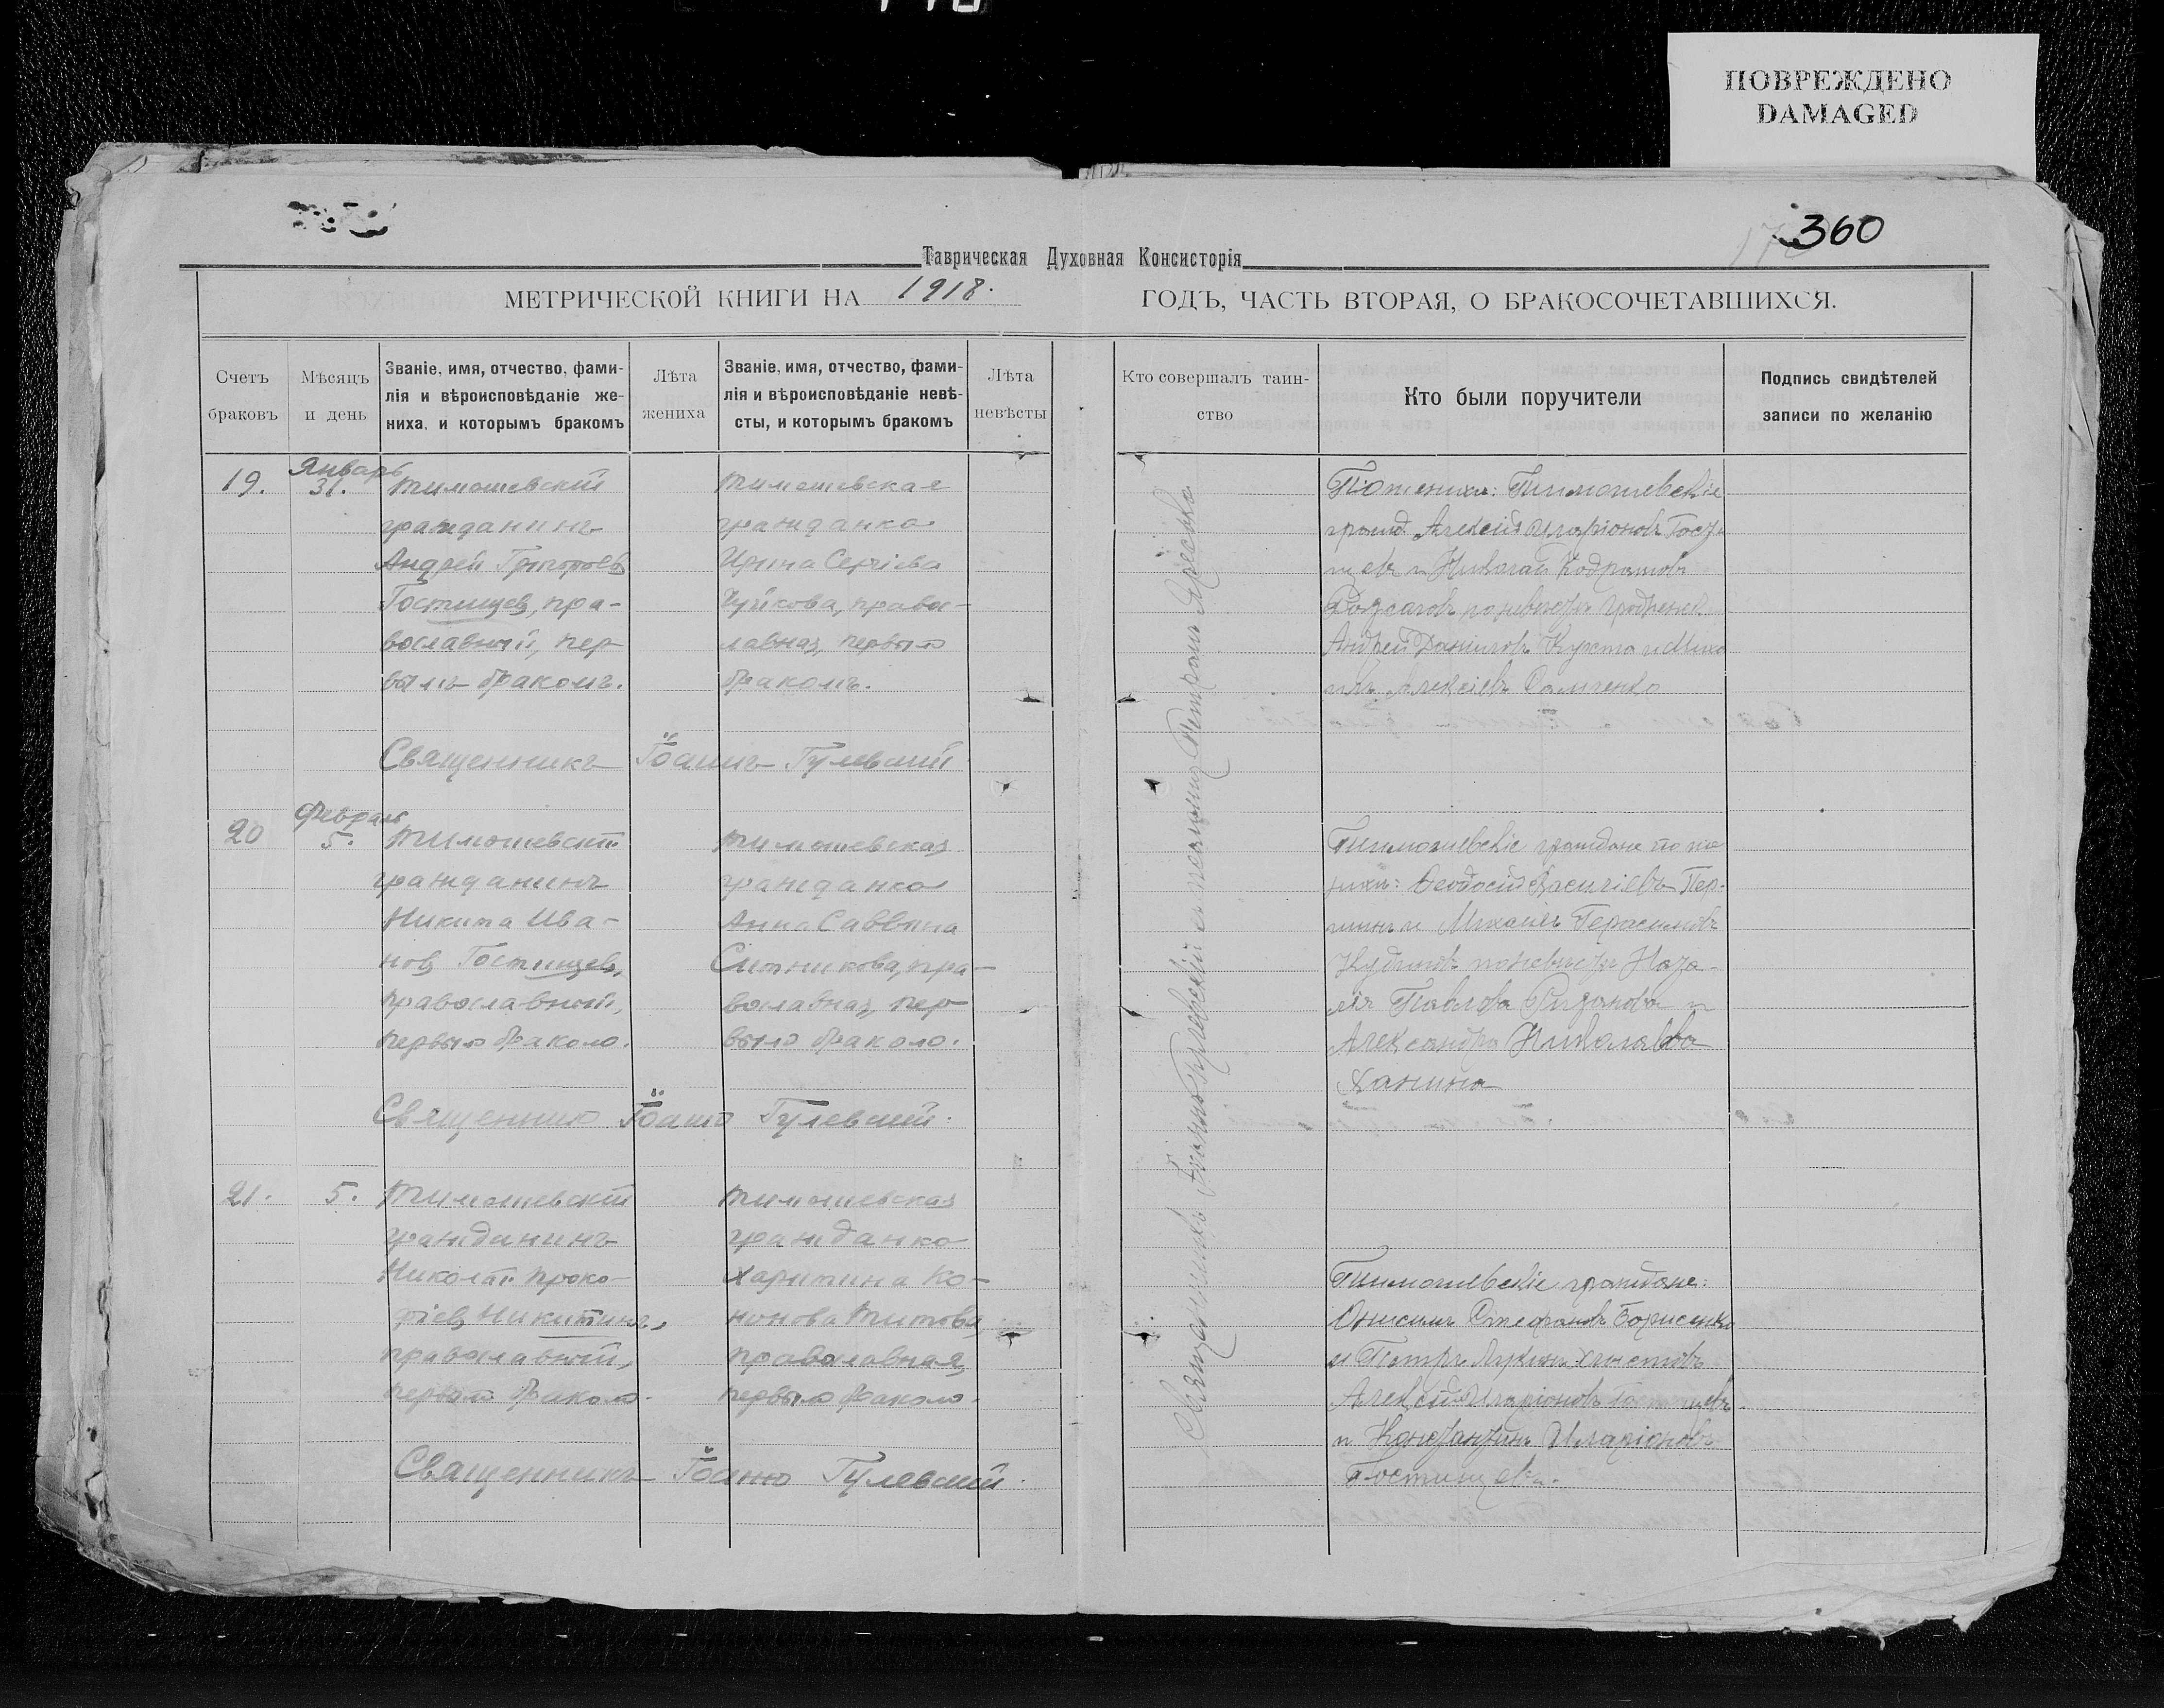 ПОВРЕЖДЕНО
DAMAGED
360
Таврическая Духовная Консисторія
МЕТРИЧЕСКОЙ КНИГИ НА 1918. ГОДЪ, ЧАСТЬ ВТОРАЯ, О БРАКОСОЧЕТАВШИХСЯ.
Счетъ браковъ
Мѣсяцъ и день
Званіе, имя, отчество, фами-
лія и вѣроисповѣданіе же-
ниха, и которымъ бракомъ
Лѣта жениха
Званіе, имя, отчество, фами-
лія и вѣроисповѣданіе невѣ-
сты, и которымъ бракомъ
Лѣта невѣсты
Кто совершалъ таин-
ство
Кто были поручители
Подпись свидѣтелей
записи по желанію
19.
Январь
31.
Тимошевский
гражданинъ
Андрей Григорьевъ
Гостищев, пра-
вославный, пер
вымъ бракомъ.
Тимошевская
гражданка
Ирина Сергіева
Чуйкова, право-
лавная, первым
бракомъ.
По жениху: Тимошевскіе
гражд. Алексій Иларіоновъ Гости
щевъ и Николай Кодратовъ
по невѣстѣ
Андрей Даниловъ и Миха
илъ Алексіевъ
Священникъ Іоаннъ Гулевский
20
Февраль
5.
Тимошевскій
гражданинъ
Никита Ива-
нов Гостищев,
православный,
первым браком.
Тимошевская
гражданка
Анна Саввина
Ситникова, пра-
вославная, пер
вым браком.
Тимошевскіе граждане по же
ниху: Феодосій Васильевъ Пер-
шинъ и Михаилъ Герасимовъ
по невѣстѣ
Павлова и
Александра Николаева
Ханина
Священник Іоанн Гулевский.
21.
5.
Тимошевскій
гражданинъ
Николай Проко-
фіев Никитинъ,
православный,
первым браком.
Тимошевская
гражданка
Харитина Ко-
нонова Титова,
православная,
первым браком.
Тимошевскіе граждане:
Онисимъ Стефановъ Борисенко
и Петръ Лукинъ
Алексій Иларіоновъ Гостищевъ
и Константинъ Иларіоновъ
Гостищевъ.
Священникъ Іоанн Гулевский.
Священникъ Іоаннъ Гулевский и псаломщ. Петромъ